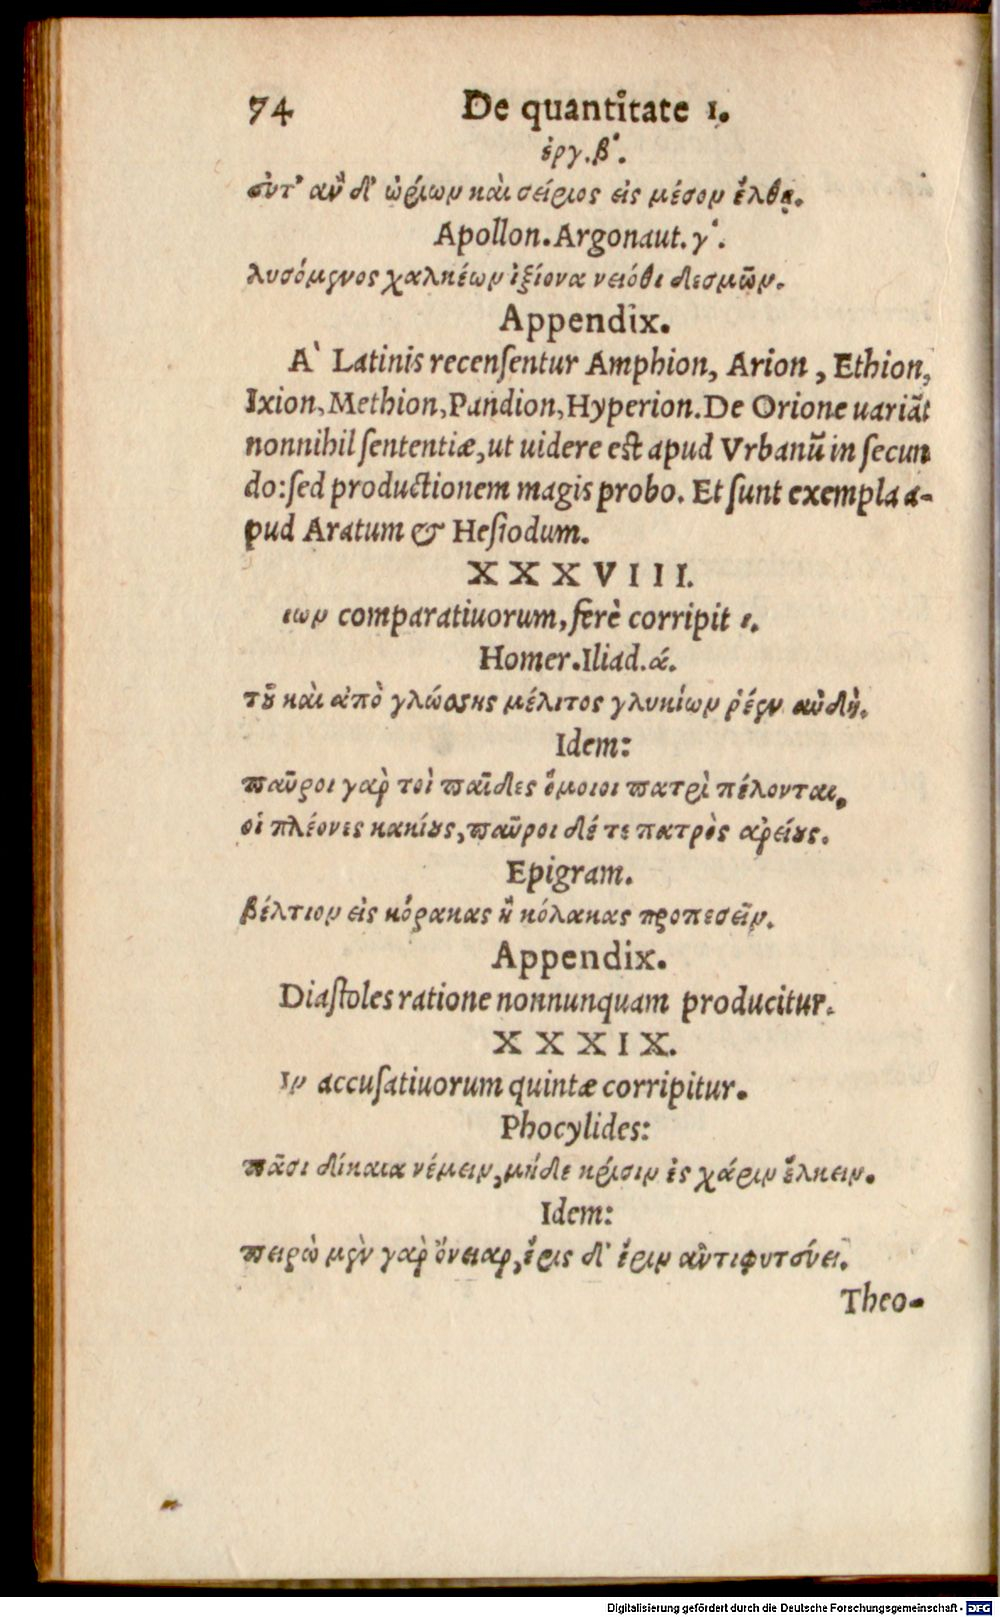 74 De quantitate ι.
ἐργ.β'.
εὖτ' ἂν δ' ὠρίων καὶ σείριος εἰς μέσον ἔλθῃ.
Apollon. Argonaut. γ'.
λυσόμενος χαλκέων ἰξίονα νειόθι δεσμῶν.
Appendix.
A` Latinis recenſentur Amphion, Arion, Ethion,
Ixion, Methion, Pandion, Hyperion. De Orione uariãt
nonnihil ſententiæ, ut uidere eſt apud Vrbanũ in ſecun
do: ſed productionem magis probo. Et ſunt exempla a-
pud Aratum & Heſiodum.
XXXVIII.
ιων comparatiuorum, ferè corripit ι.
Homer. Iliad. ά.
τȣ͂ καὶ ἀπὸ γλώσσης μέλιτος γλυκίων ῥέεν αὐδὴ.
Idem:
παῦροι γαρ̀ τοὶ παῖδες ὅμοιοι πατρὶ πέλονται,
οἱ πλέονες κακίȣς, παῦροι δέ τε πατρὸς αρείȣς.
Epigram.
βέλτιον εἰς κόρακας ἢ κόλακας προπεσεῖν.
Appendix.
Diaſtoles ratione nonnunquam producitur.
XXXIX.
Ιν accuſatiuorum quintæ corripitur.
Phocylides:
πᾶσι δίκαια νέμειν, μήδε κρίσιν ἐς χάριν ἕλκειν.
Idem:
πειρὼ μὲν γαρ̀ ὄνειαρ, ἔρις δ' ἔριν ἀντιφυτεύει.
Theo-
Digitalisierung gefördert durch die Deutsche Forschungsgemeinschaft - DFG